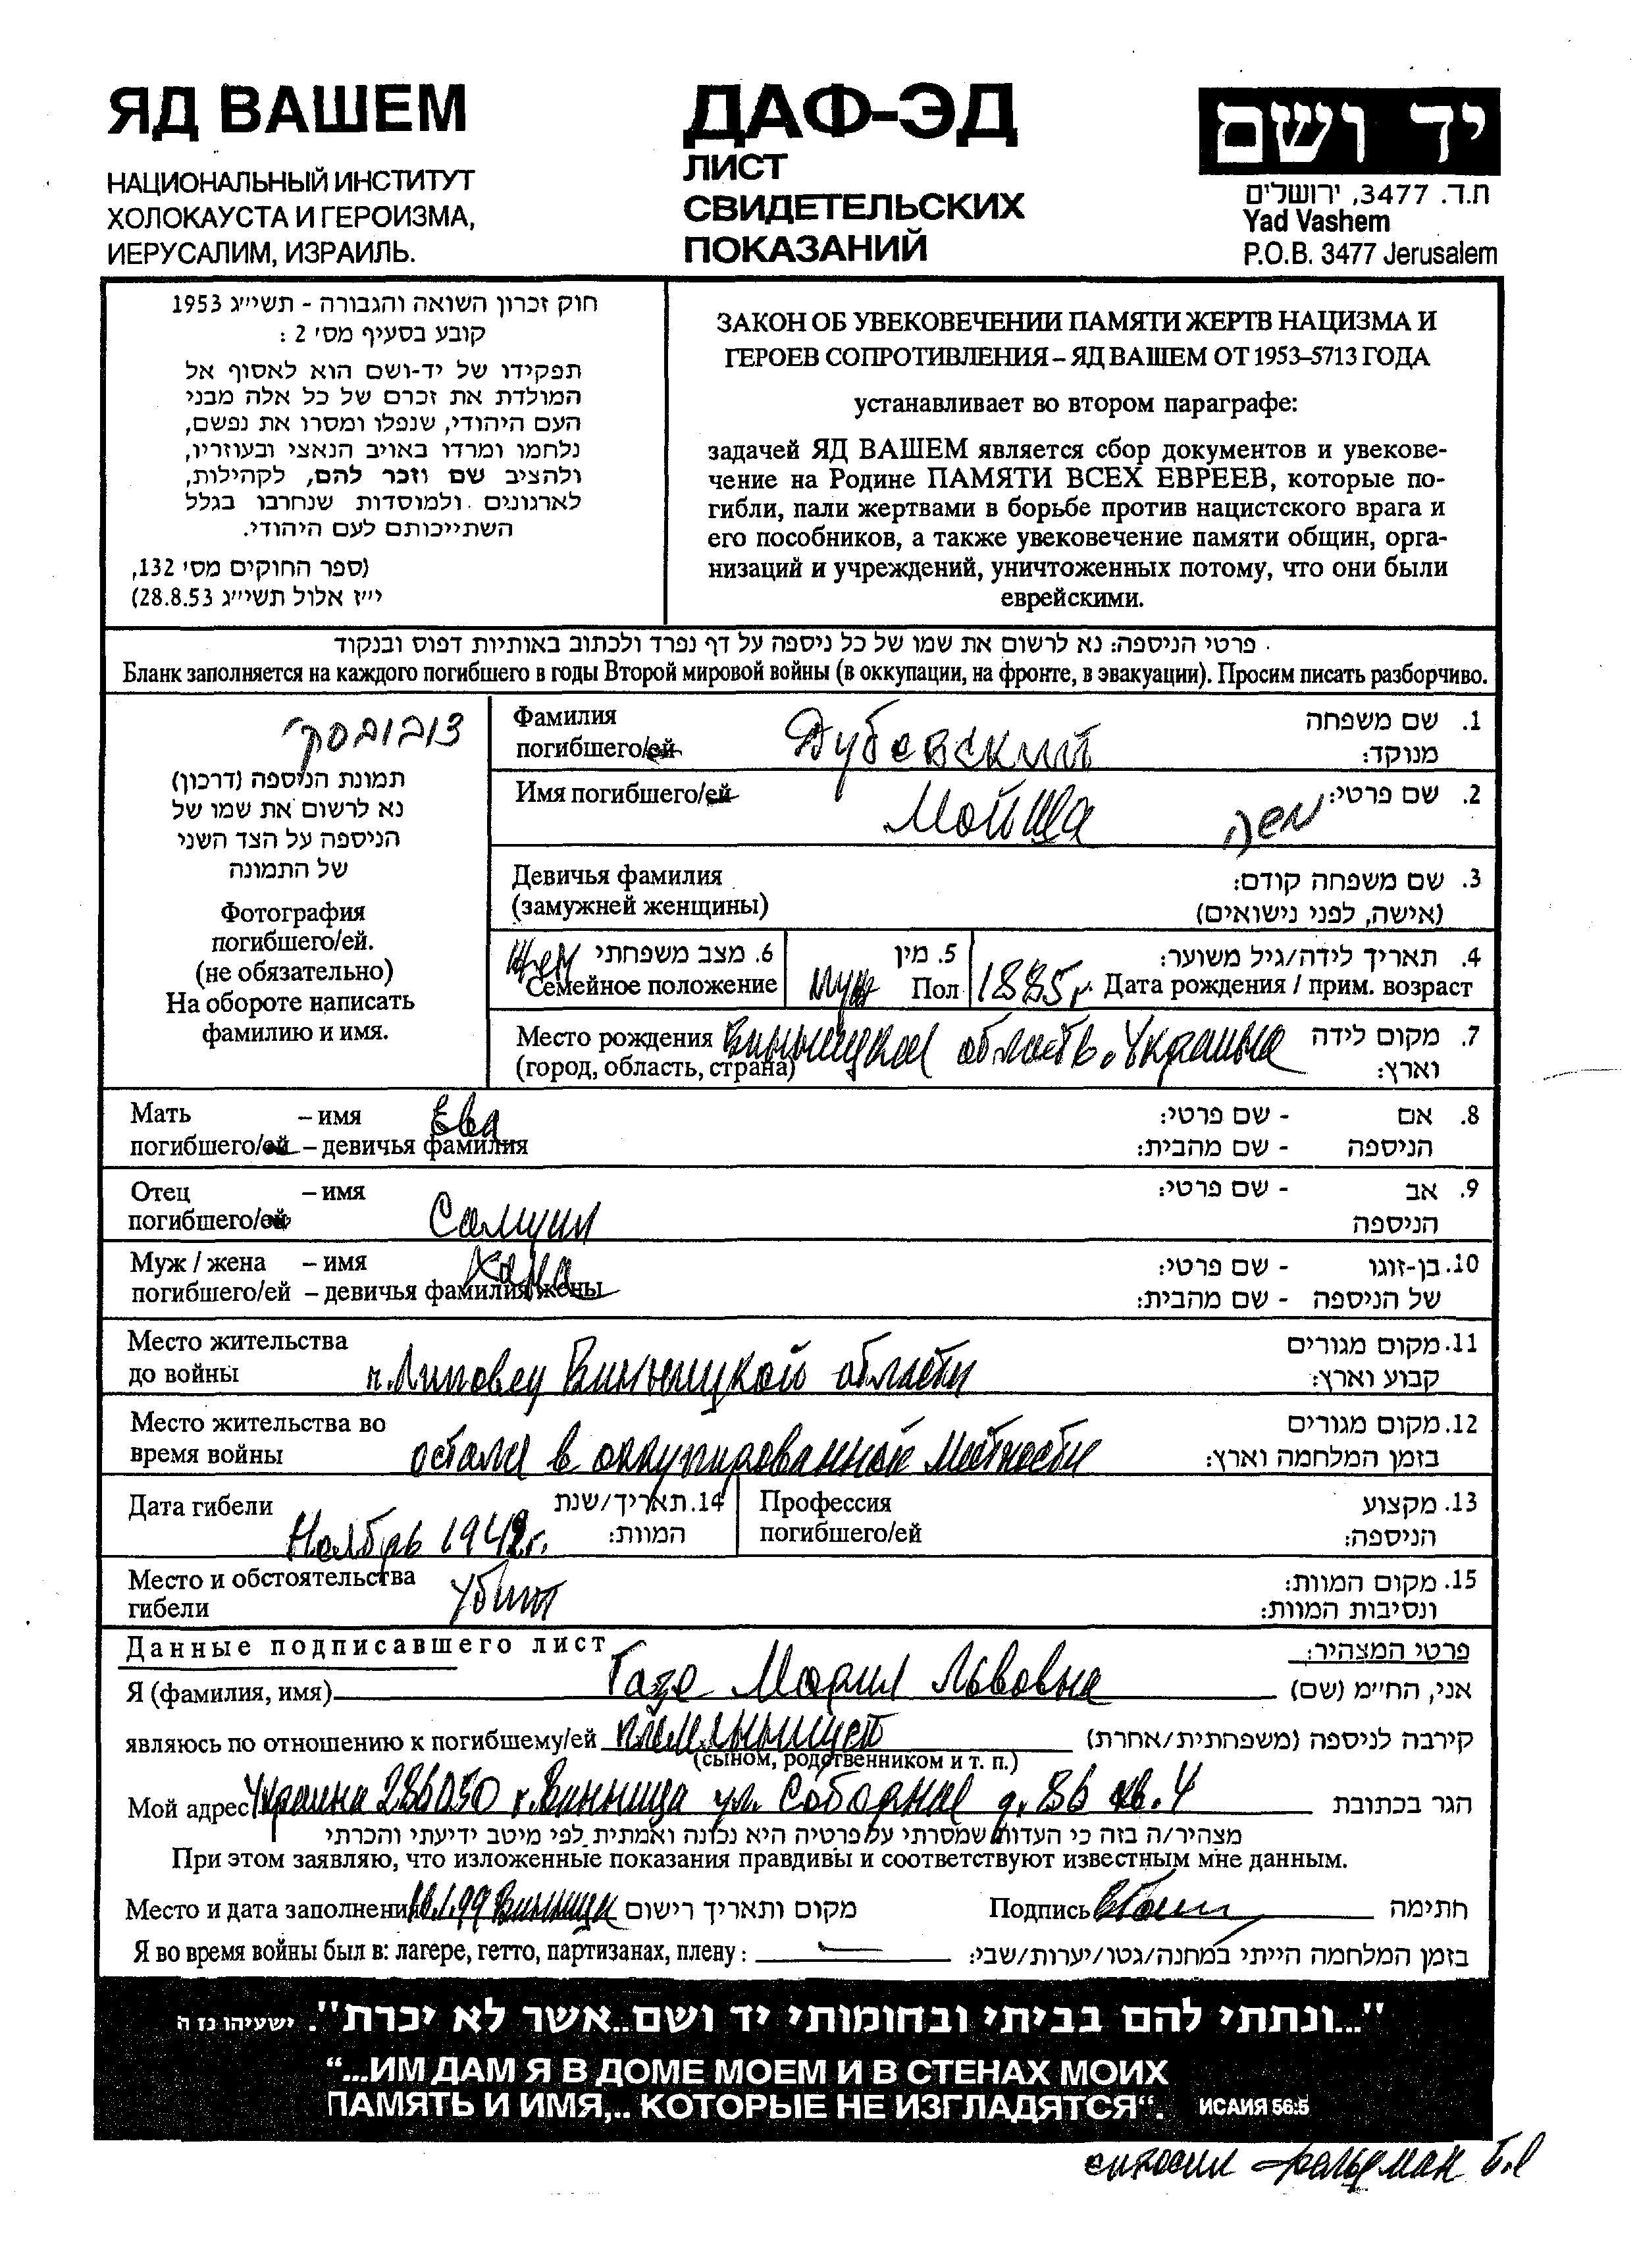 ЯД ВАШЕМ
НАЦИОНАЛЬНЫЙ ИНСТИТУТ
ХОЛОКАУСТА И ГЕРОИЗМА,
ИЕРУСАЛИМ, ИЗРАИЛЬ.
ДАФ-ЭД
ЛИСТ
СВИДЕТЕЛЬСКИХ
ПОКАЗАНИЙ
יד ושם
ת.ד. 3477, ירושלים
Yad Vashem
P.O.B. 3477 Jerusalem
חוק זכרון השואה והגבורה - תשי״ג 1953
קובע בסעיף מס׳ 2 :
תפקידו של יד-ושם הוא לאסוף אל
המולדת את זכרם של כל אלה מבני
העם היהודי, שנפלו ומסרו את נפשם,
נלחמו ומרדו באויב הנאצי ובעוזריו,
ולהציב שם וזכר להם, לקהילות,
לארגונים ולמוסדות שנחרבו בגלל
השתייכותם לעם היהודי.
(ספר החוקים מס׳ 132,
י״ז אלול תשי״ג 28.8.53)
ЗАКОН ОБ УВЕКОВЕЧЕНИИ ПАМЯТИ ЖЕРТВ НАЦИЗМА И
ГЕРОЕВ СОПРОТИВЛЕНИЯ – ЯД ВАШЕМ ОТ 1953–5713 ГОДА
устанавливает во втором параграфе:
задачей ЯД ВАШЕМ является сбор документов и увекове-
чение на Родине ПАМЯТИ ВСЕХ ЕВРЕЕВ, которые по-
гибли, пали жертвами в борьбе против нацистского врага и
его пособников, а также увековечение памяти общин, орга-
низаций и учреждений, уничтоженных потому, что они были
еврейскими.
פרטי הניספה: נא לרשום את שמו של כל ניספה על דף נפרד ולכתוב באותיות דפוס ובנקוד
Бланк заполняется на каждого погибшего в годы Второй мировой войны (в оккупации, на фронте, в эвакуации). Просим писать разборчиво.
דובובסקי
תמונת הניספה (דרכון)
נא לרשום את שמו של
הניספה על הצד השני
של התמונה
Фотография
погибшего/ей.
(не обязательно)
На обороте написать
фамилию и имя.
Фамилия Дубовский 1. שם משפחה
погибшего/ей מנוקד:
Имя погибшего/ей Мойша משה 2. שם פרטי:
Девичья фамилия 3. שם משפחה קודם:
(замужней женщины) (אישה, לפני נישואים)
жен 6. מצב משפחתי 5. מין 4. תאריך לידה/גיל משוער:
Семейное положение муж Пол 1885г. Дата рождения / прим. возраст
Место рождения Винницкая область. Украина 7. מקום לידה
(город, область, страна) וארץ:
Мать – имя Ева - שם פרטי: 8. אם
погибшего/ей – девичья фамилия - שם מהבית: הניספה
Отец – имя Самуил - שם פרטי: 9. אב
погибшего/ей הניספה
Муж / жена – имя Хана - שם פרטי: 10. בן-זוגו
погибшего/ей – девичья фамилия жены - שם מהבית: של הניספה
Место жительства 11. מקום מגורים
до войны г. Липовец Винницкой области קבוע וארץ:
Место жительства во 12. מקום מגורים
время войны остался в оккупированной местности בזמן המלחמה וארץ:
Дата гибели Ноябрь 1942г. 14. תאריך/שנת המוות:
Профессия 13. מקצוע
погибшего/ей הניספה:
Место и обстоятельства убит 15. מקום המוות:
гибели ונסיבות המוות:
Данные подписавшего лист פרטי המצהיר:
Я (фамилия, имя) Мария Львовна אני, הח״מ (שם)
являюсь по отношению к погибшему/ей племянницей קירבה לניספה (משפחתית/אחרת)
(сыном, родственником и т. п.)
Мой адрес Украина 286050 г. Винница ул. Соборная д. 86 кв. 4 הגר בכתובת
מצהיר/ה בזה כי העדות שמסרתי על פרטיה היא נכונה ואמתית לפי מיטב ידיעתי והכרתי
При этом заявляю, что изложенные показания правдивы и соответствуют известным мне данным.
Место и дата заполнения Винница מקום ותאריך רישום Подпись חתימה
Я во время войны был в: лагере, гетто, партизанах, плену: — בזמן המלחמה הייתי במחנה/גטו/יערות/שבי:
"...ונתתי להם בביתי ובחומותי יד ושם..אשר לא יכרת". ישעיהו נז ה
“...ИМ ДАМ Я В ДОМЕ МОЕМ И В СТЕНАХ МОИХ
ПАМЯТЬ И ИМЯ,.. КОТОРЫЕ НЕ ИЗГЛАДЯТСЯ“. ИСАИЯ 56:5
Фельдман